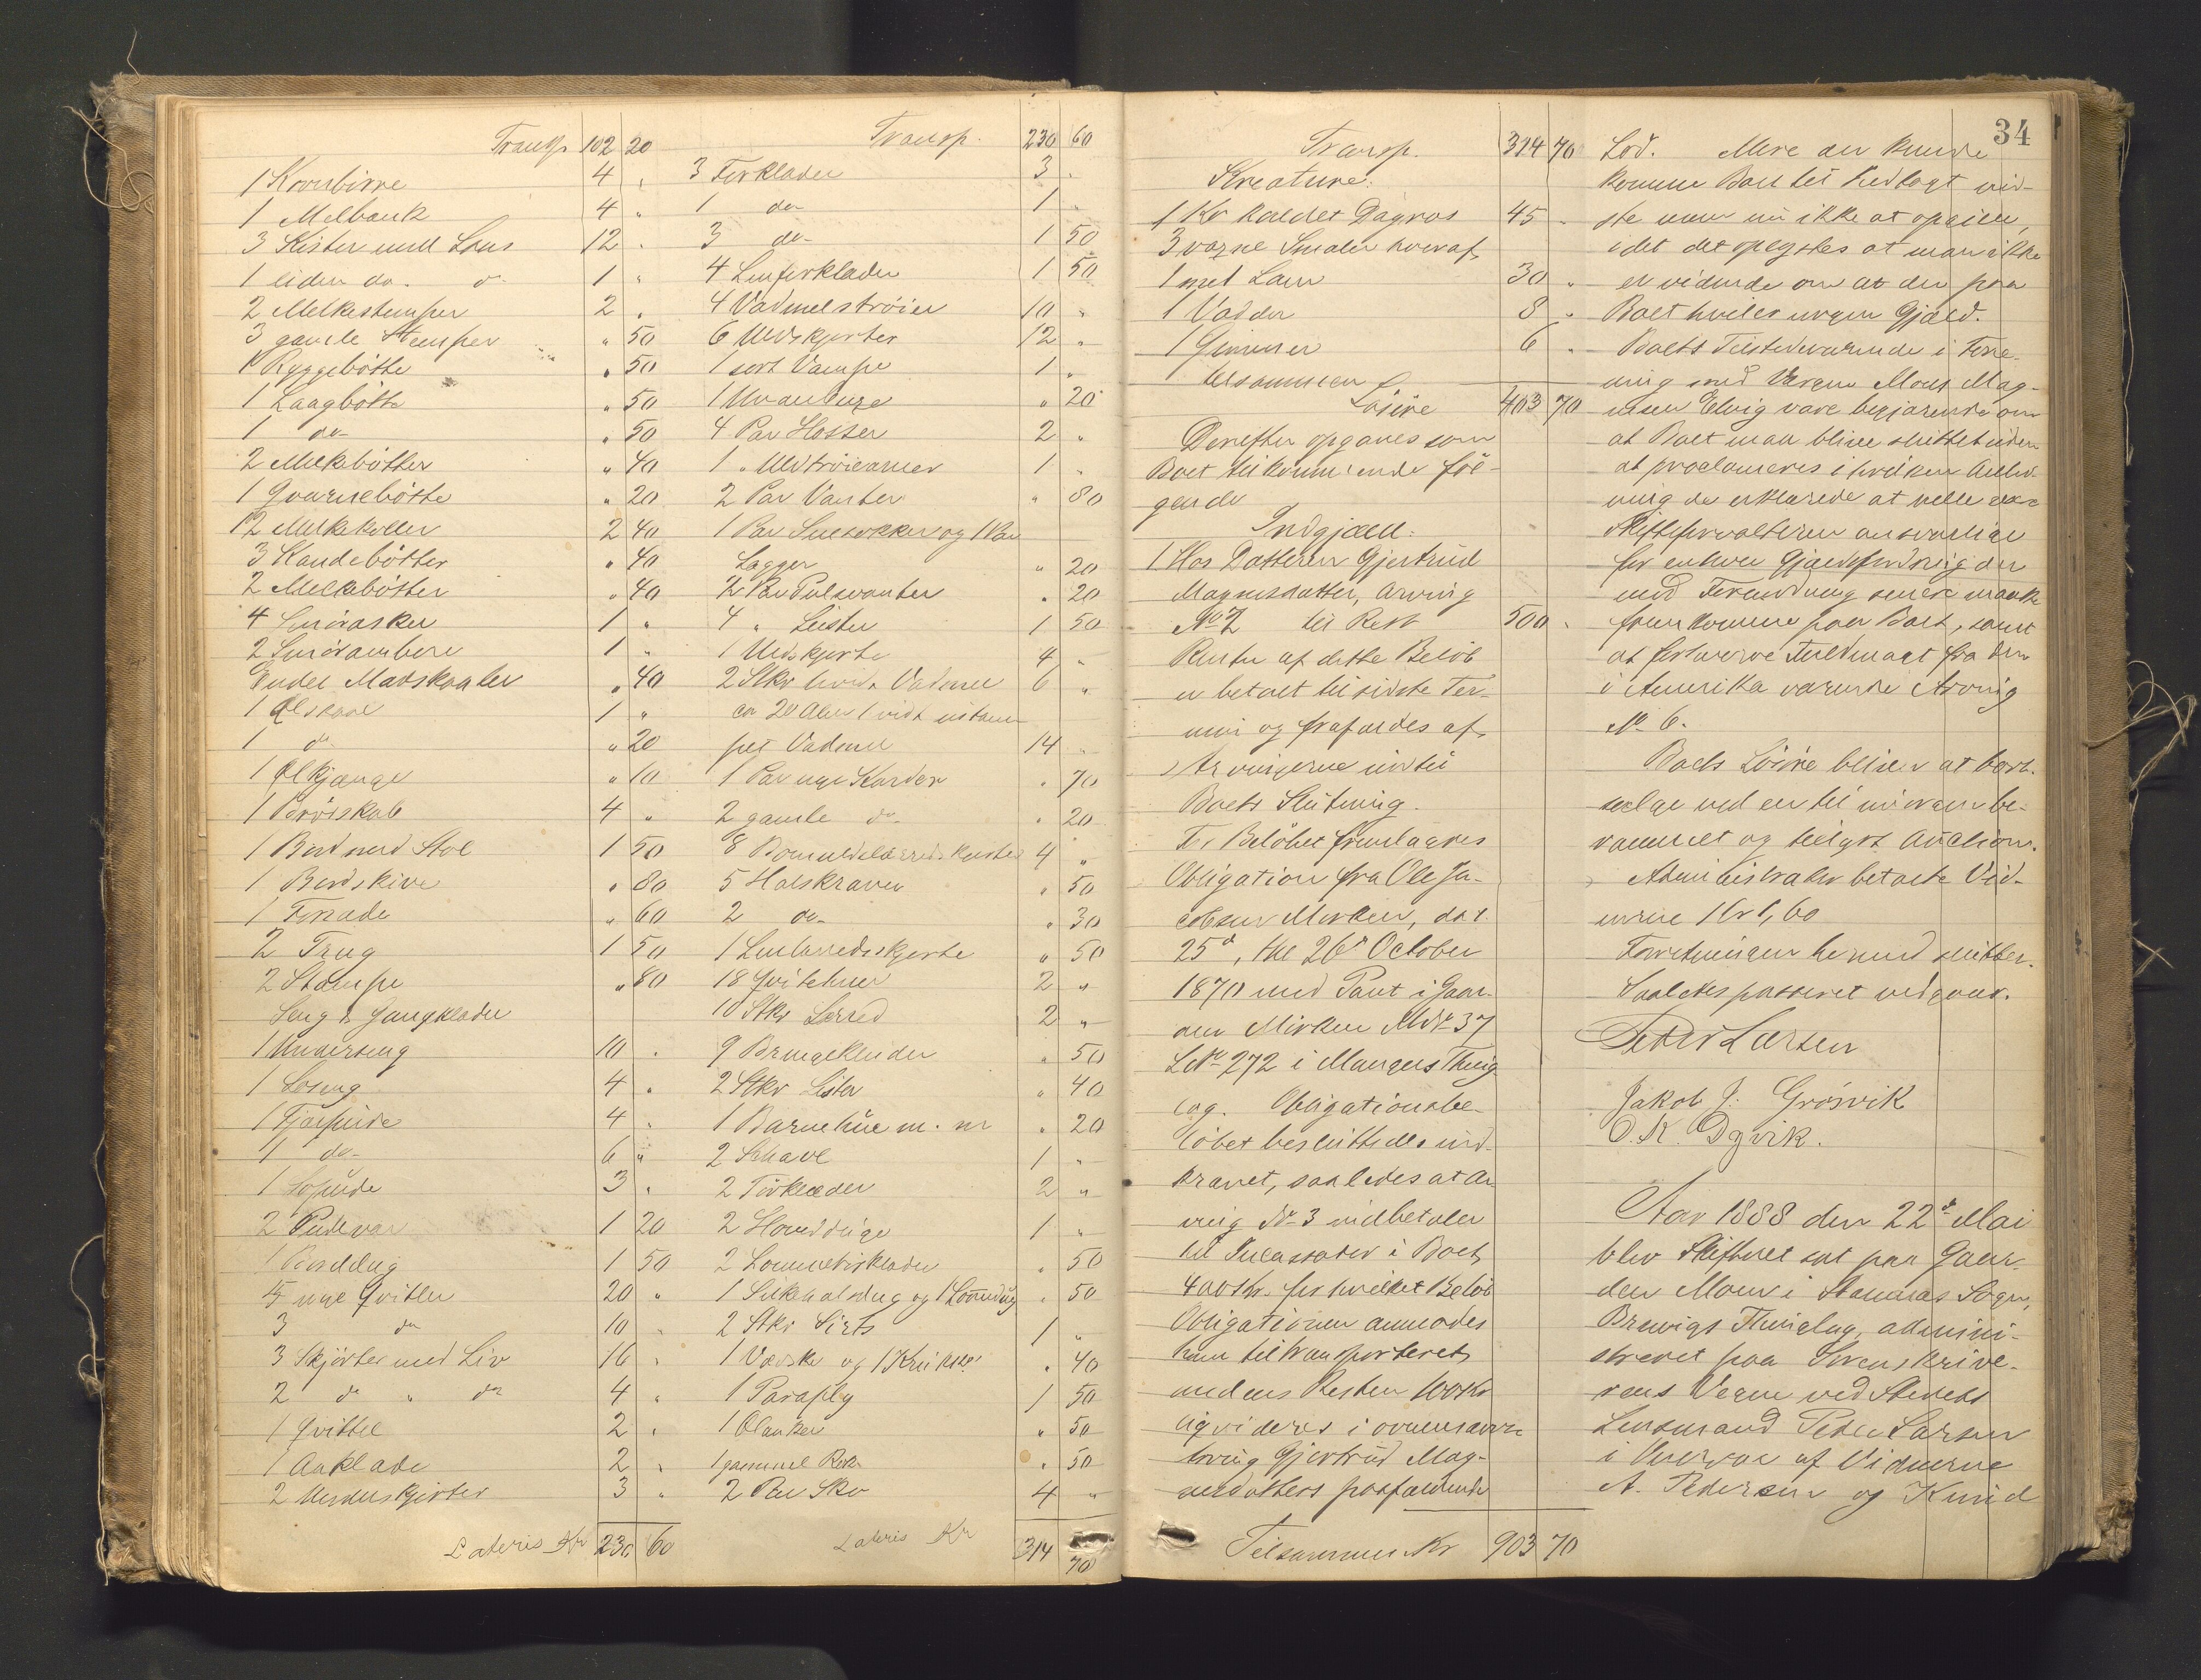 Transp 102 20
1 Kornbinne 4 "
1 Melbank 4 "
3 Kister med Laas 12 "
1 liden do. do 1 "
2 Melkestemper 2 "
3 gamle Stemper " 50
1 Ryggebøtte " 50
1 Laagbøtte " 50
1 do " 50
2 Melkebøtter " 40
1 Qvernebøtte " 20
12 Melkekoller 2 40
3 Kandebøtter " 40
2 Melkebøtter " 40
4 Smøræsker 1 "
2 Smørambere 1 "
Endel Madskaaler " 40
1 Ølskaal 1 "
1 do " 20
1 Ølkjænge " 10
1 Brødskab 4 "
1 Bord med Stol 1 50
1 Bordskive " 80
1 " 60
2 Trug 1 50
2 Stampe " 80
Seng & Gangklæder
1 Underseng 10 "
1 Loseng 4 "
1 4 "
1 do 6 "
1 Lopude 3 "
2 Pudevar 1 20
1 Borddug 1 50
5 nye Qvitler 20 "
3 do 10 "
3 Skjørter med Liv 16 "
2 do " do 4 "
1 Qvittel 2 "
1 Aaklæde 2 "
2 Underskjørter 3 "
Lateris Kr 230 60
Transp. 230 60
3 Forklæder 3 "
1 do 1 "
3 do 1 50
4 Linforklæder 1 50
4 Vadmelstrøier 10 "
6 Uldskjorter 12 "
1 sort Vampe 1 "
1 " 20
4 Par Hosser 2 "
1 " Uldtrøieærmer 1 "
2 Par Vanter " 80
1 Par Snesokker og 1 Par
Lagger " 20
2 Par Pulsvanter " 20
4 " Leister 1 50
1 Uldskjorte 4 "
2 Stkr hvid Vadmel 6 "
ca 20 Alen 1 vidt ustam-
pet Vadmel 14 "
1 Par nye Karder " 70
2 gamle do " 20
8 Bomuldslærredsskjorter 4 "
5 Halskraver " 50
2 do " 30
1 Linlærredsskjorte " 50
18 2 "
10 Stkr Lærred 2 "
9 Bringekluder " 50
2 Stkr Lister " 40
1 Barnehue m. m " 20
2 Schavl 1 "
2 Tørklæder 2 "
2 Hovedduge 1 "
2 Lommetørklæder " 50
1 Silkehalsdug og 1 " 50
2 Stkr Sirts 1 "
1 Væske og 1 " 40
1 Paraply 1 50
1 " 50
1 gammel Rok " 50
2 Par Sko 4 "
Lateris Kr 314 70
Transp. 314 70
Kreature.
1 Ko kaldet Dagros 45 "
3 voxne Smaler hvoraf
1 med Lam 30 "
1 Vædder 8 "
1 Gimmer 6 "
tilsammen
Løsøre 403 70
Derefter opgaves som
Boet tilkommende føl-
gende
Indgjæld.
1 Hos Datteren Gjertrud
Magnusdatter, Arving
No 2 til Rest 500 "
Renter af dette Beløb
er betalt til sidste Ter-
min og frafaldes af
Arvingerne indtil
Boets Slutning.
For Beløbet fremlagdes
Obligation fra Ole Ja-
cobsen Mirken, dat.
25d, thl 26d October
1870 med Pant i Gaar-
den Mirken MNr 37
LNo 272 i Mangers Thing-
lag. Obligationsbe-
løbet besluttedes ind-
krævet, saaledes at Ar-
ving No 3 indbetaler
til Incassator i Boet
400 Kr. for hvilket Beløb
Obligationen anmodes
ham tiltransporteret,
medens Resten 100 Kr
liqvideres i ovennævnte
Arving Gjertrud Mag-
nusdatters paafaldende
Tilsammen Kr 903 70
34
Lod. Mere der kunde
komme Boet til Indtægt vid-
ste man nu ikke at opgive,
idet det oplystes at man ikke
er vidende om at der paa
Boet hviler nogen Gjæld.
Boets Tilstedeværende i Fore-
ning med Værgen Mons Mag-
nesen Elvig vare begjærende om
at Boet maa blive sluttet uden
at proclameres i hvilken Anled-
ning de erklærede at ville være
Skifteforvalteren ansvarlige
for enhver Gjældsfordring der
med Formodning senere maatte
fremkomme paa Boet, samt
at forhverve Fuldmagt fra den
i Amerika værende Arving
No 6.
Boets Løsøre bliver at bort-
sælge ved en til imorgen be-
rammet og tillyst Auction.
Administrator betalte Vid-
nerne 1 Kr 1,60
Forretningen hermed sluttet.
Saaledes passeret vidner.
Peder Larsen
Jakob J. Grøsvik
O. K. Dyvik.
Aar 1888 den 22d Mai
blev Skifteret sat paa Gaar-
den Moen i Hammers Sogn,
Thinglag, admini-
streret paa Sorenskrive-
rens Vegne ved Stedets
Lensmand Peder Larsen
i Overvær af Vidnerne
A. Pedersen og Knud